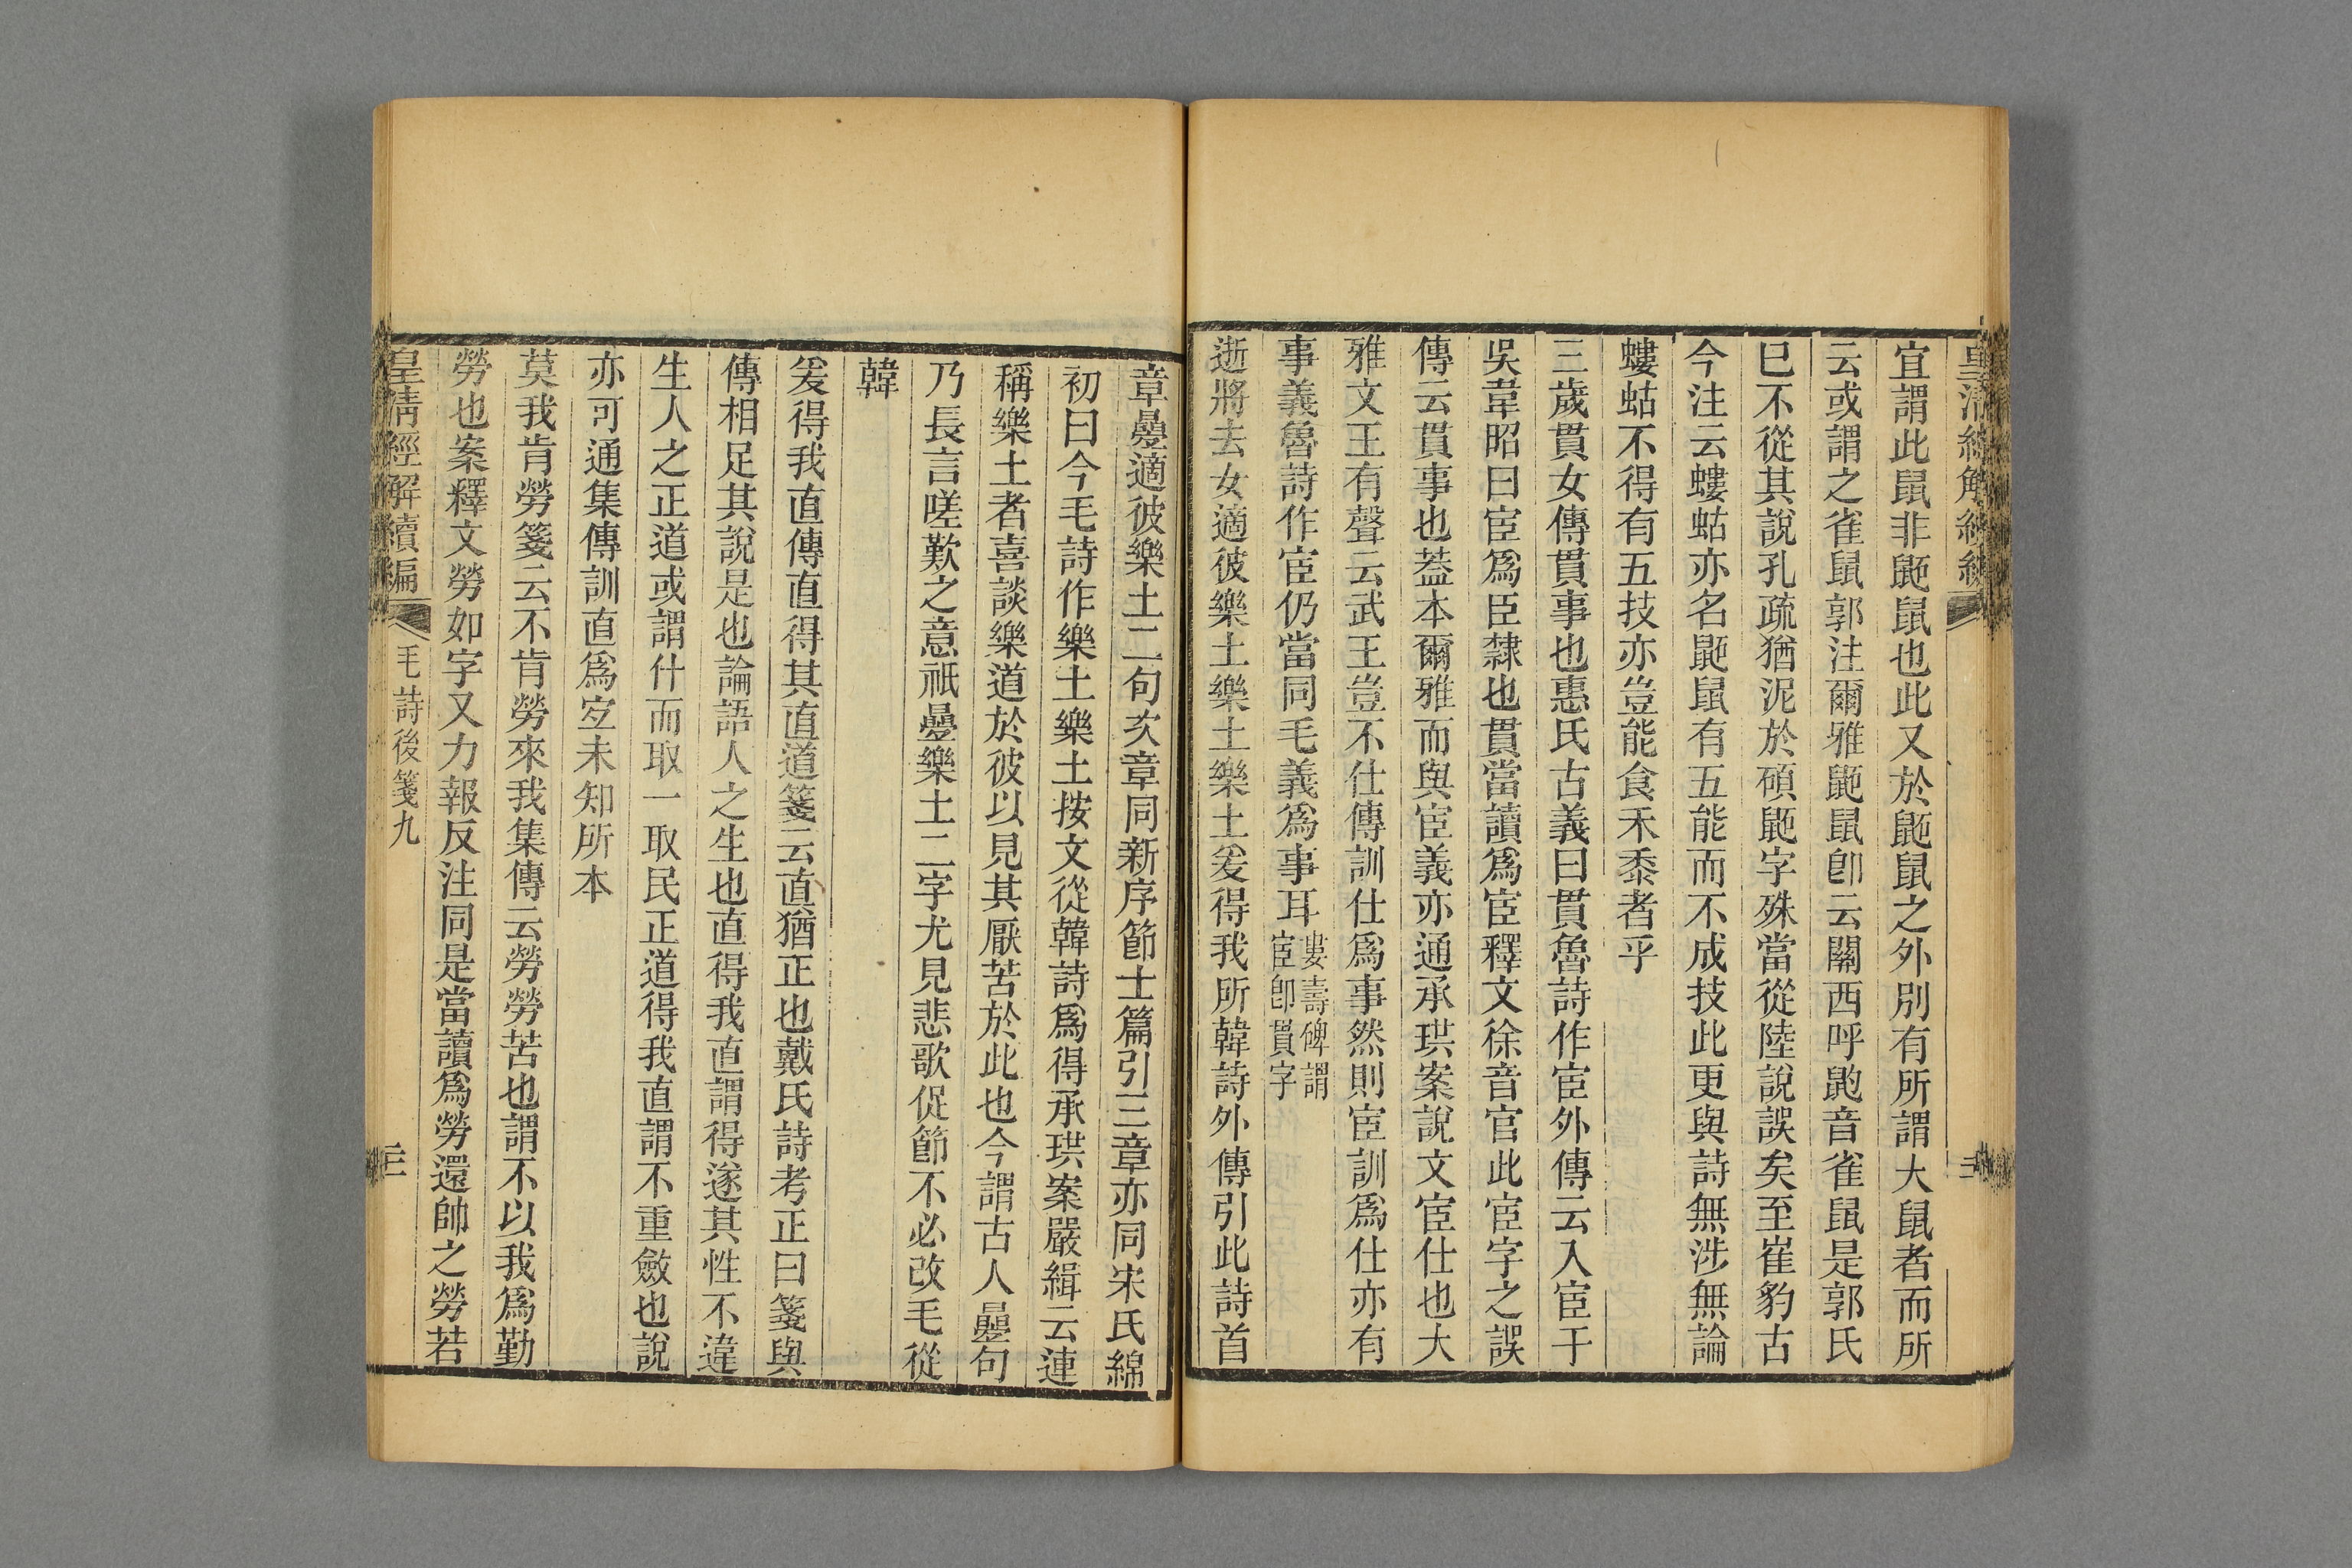 皇清經解續編
宜謂此鼠非鼫鼠也此又於鼫鼠之外別有所謂大鼠者而所
云或謂之雀鼠郭注爾雅鼫鼠卽云關西呼鼩音雀鼠是郭氏
已不從其說孔疏猶泥於碩鼫字殊當從陸說誤矣至崔豹古
今注云螻蛄亦名鼫鼠有五能而不成技此更與詩無涉無論
螻蛄不得有五技亦豈能食禾黍者乎
三歲貫女傳貫事也惠氏古義曰貫魯詩作宦外傳云入宦于
吳韋昭曰宦爲臣隸也貫當讀爲宦釋文徐音官此宦字之誤
傳云貫事也葢本爾雅而與宦義亦通承珙案說文宦仕也大
雅文王有聲云武王豈不仕傳訓仕爲事然則宦訓爲仕亦有
事義魯詩作宦仍當同毛義爲事耳婁壽碑謂宦卽貫字
逝將去女適彼樂土樂土樂土爰得我所韓詩外傳引此詩首
章疊適彼樂土二句次章同新序節士篇引三章亦同宋氏綿
初曰今毛詩作樂土樂土按文從韓詩爲得承珙案嚴緝云連
稱樂土者喜談樂道於彼以見其厭苦於此也今謂古人疊句
乃長言嗟歎之意祇疊樂土二字尤見悲歌促節不必改毛從
韓
爰得我直傳直得其直道箋云直猶正也戴氏詩考正曰箋與
傳相足其說是也論語人之生也直得我直謂得遂其性不違
生人之正道或謂什而取一取民正道得我直謂不重斂也說
亦可通集傳訓直爲宜未知所本
莫我肯勞箋云不肯勞來我集傳云勞勞苦也謂不以我爲勤
勞也案釋文勞如字又力報反注同是當讀爲勞還帥之勞若
皇清經解續編 毛詩後箋九